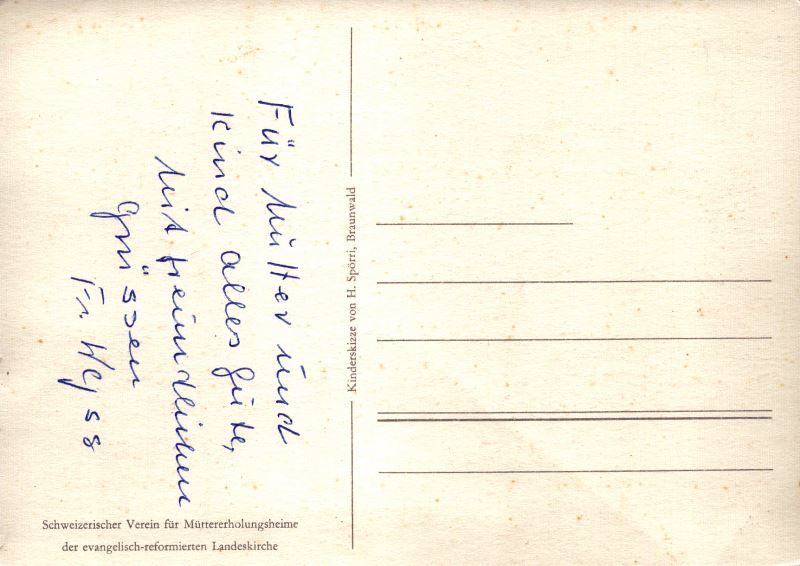 Für Mutter und
Kind alles Gute,
Mit freundlichen
grüssen
Fr. Wyss
Kinderskizze von H. Spörri, Braunwald
Schweizerischer Verein für Müttererholungsheime
der evangelisch-reformierten Landeskirche